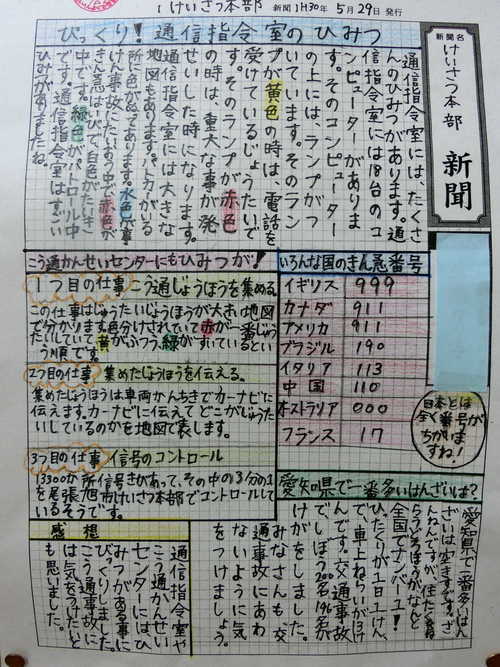 けいさつ本部 新聞 H30年 5月29日 発行
新聞名
けいさつ本部
新聞
びっくり!通信指令室のひみつ
通信指令室には、たくさ
んのひみつがあります。通
信指令室には18台のコ
ンピューターがありま
す。そのコンピューター
の上には、ランプがつ
いています。そのラン
プが黄色の時は、電話を
受けているじょうたいで
す。そのランプが赤色
の時は、重大な事が発
せいした時になります。
通信指令室には大きな
地図もあります。パトカーがいる
所に色がぬってあります。水色が事
けん事故にたいおう中で赤色が
きん急はいびで、白色がたいき
中です。緑色がパトロール中
です。通信指令室はすごい
ひみつがありましたね。
こう通かんせいセンターにもひみつが!
1つ目の仕事 こう通じょうほうを集める
この仕事はじゅうたいじょうほうが大きい地図
で分かります。色分けされていて赤が一番じゅう
たいしていて黄がふつう、緑がすいているとい
う順です。
2つ目の仕事 集めたじょうほうを伝える。
集めたじょうほうは車両かんちきでカーナビに
伝えます。カーナビに伝えてどこがじゅうた
いしているのかを地図で表します。
3つ目の仕事 信号のコントロール
13300か所信号きがあって、その中の3分の1
を尾張旭市けいさつ本部でコントロールして
いるそうです。
いろんな国のきん急番号
イギリス 999
カナダ 911
アメリカ 911
ブラジル 190
イタリア 113
中国 110
オーストラリア 000
フランス 17
日本とは
全く番号が
ちがいま
すね!
愛知県で一番多いはんざいは?
愛知県で一番多いはん
ざいは空きすです。ざ
んねんですが、住たく
全国でナンバー1!
ひったくりが1日1けん、
で車上ねらいが
んです。交通事故
でしぼう200名196名が
けがをしました。
みなさんも、交
通事故にあわ
ないように気
をつけましょう。
感想
通信指令室や
こう通かんせい
センターには、ひ
みつがある事に
びっくりしました。
こう通事故に
は気をつけたいと
も思いました。